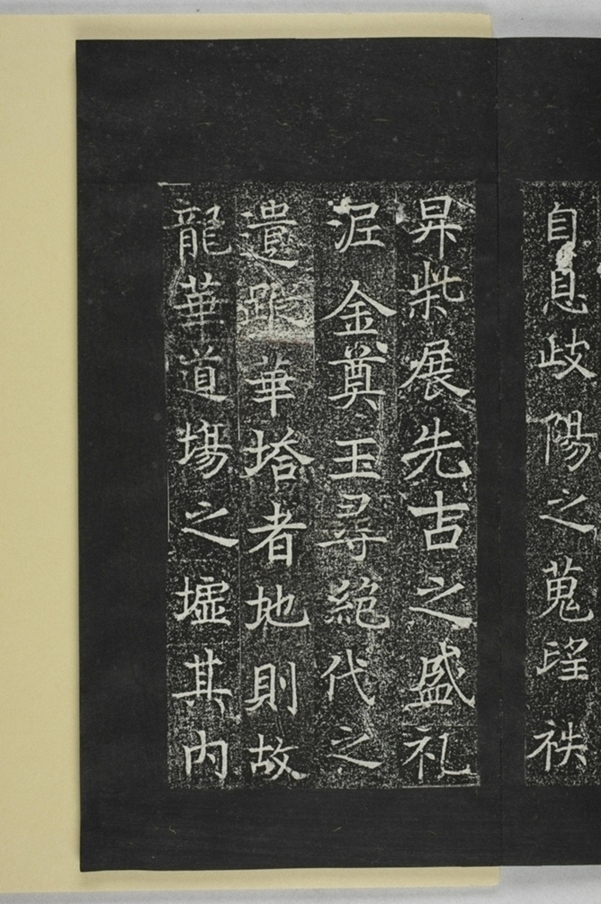 自息歧陽之蒐望秩
昇柴展先古之盛礼
泥金奠玉尋絕代之
遺蹤華塔者地則故
龍華道場之墟其內